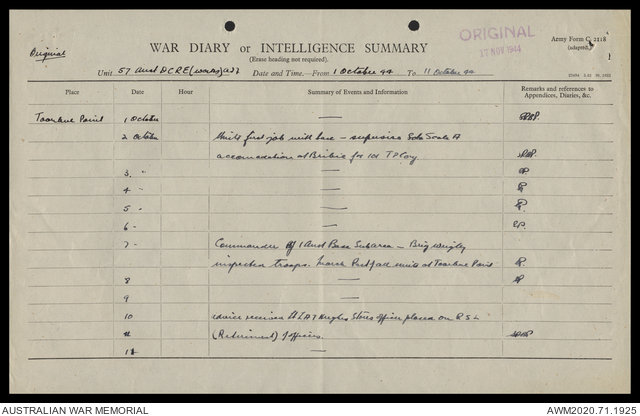 Original
WAR DIARY or INTELLIGENCE SUMMARY
(Erase heading not required).
ORIGINAL
17 NOV 1944
Army Form C. 2118
(adapted)
Unit 57 Aust DCRE (Works) Date and Time—From 1 October 44 To 11 October 44
Place Date Hour Summary of Events and Information Remarks and references to Appendices, Diaries, &c.
Toorbul Point 1 October —
2 October Units first job with base — supervise Scale A
accomodation at Bribie for Coy
3 " —
4 " —
5 " —
6 " —
7 " Commander of 1 Aust Base Subarea — Brig Wrigley
inspected troops. March Past of all units at Toorbul Point
8 —
9 —
10 advice received Lt Hughes Stores Officer placed on R S L
(Retirement) of officers.
11 —
AUSTRALIAN WAR MEMORIAL
AWM2020.71.1925